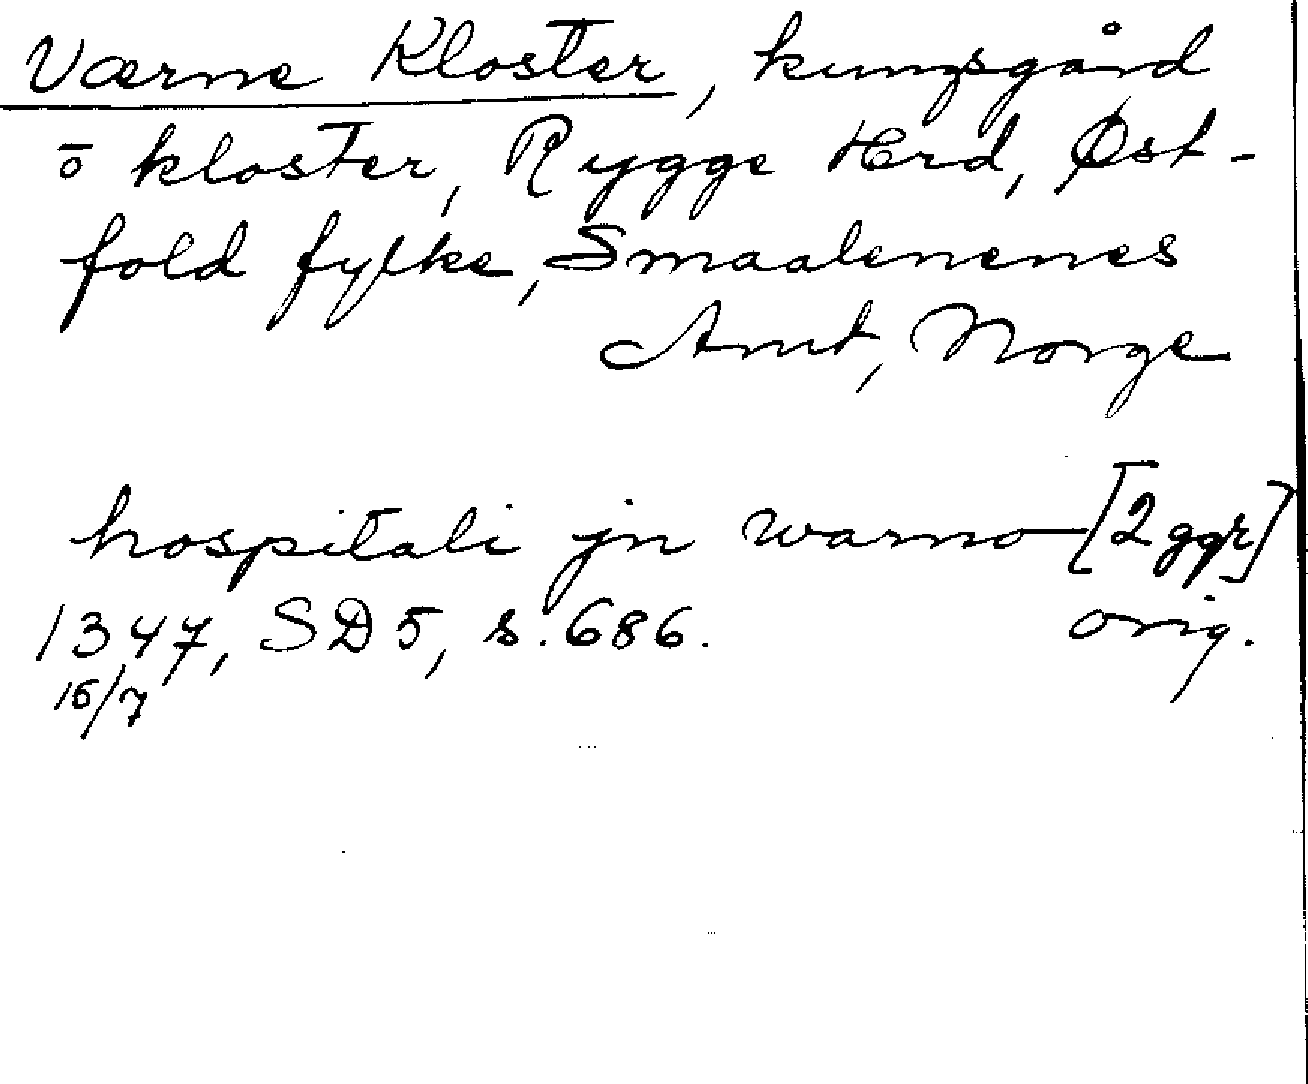 Værne Kloster, kungsgård
o kloster, Rygge Hrd, Øst-
fold fylke, Smaalenenes
Amt, Norge
hospitali jn warno [2 ggr]
1347, SD 5, s. 686. orig.
15/7